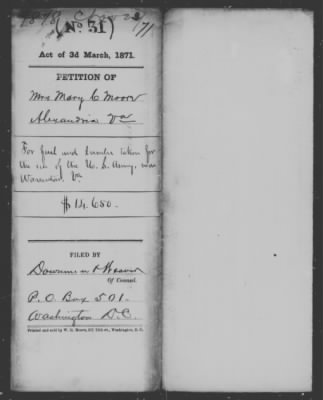 (No. 31)
Act of 3d March, 1871.
PETITION OF
Mrs Mary C Moore
Alexandria Va
For fuel and lumber taken for
the use of the U. S. Army, near
Warrenton Va
$14.650.
FILED BY
Downman & Weaver
Of Counsel.
P. O. Box 501.
Washington D.C.
Printed and sold by W. H. Moore, 511 11th st., Washington, D. C.